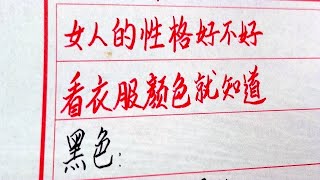 女人的性格好不好
看衣服颜色就知道
黑色: